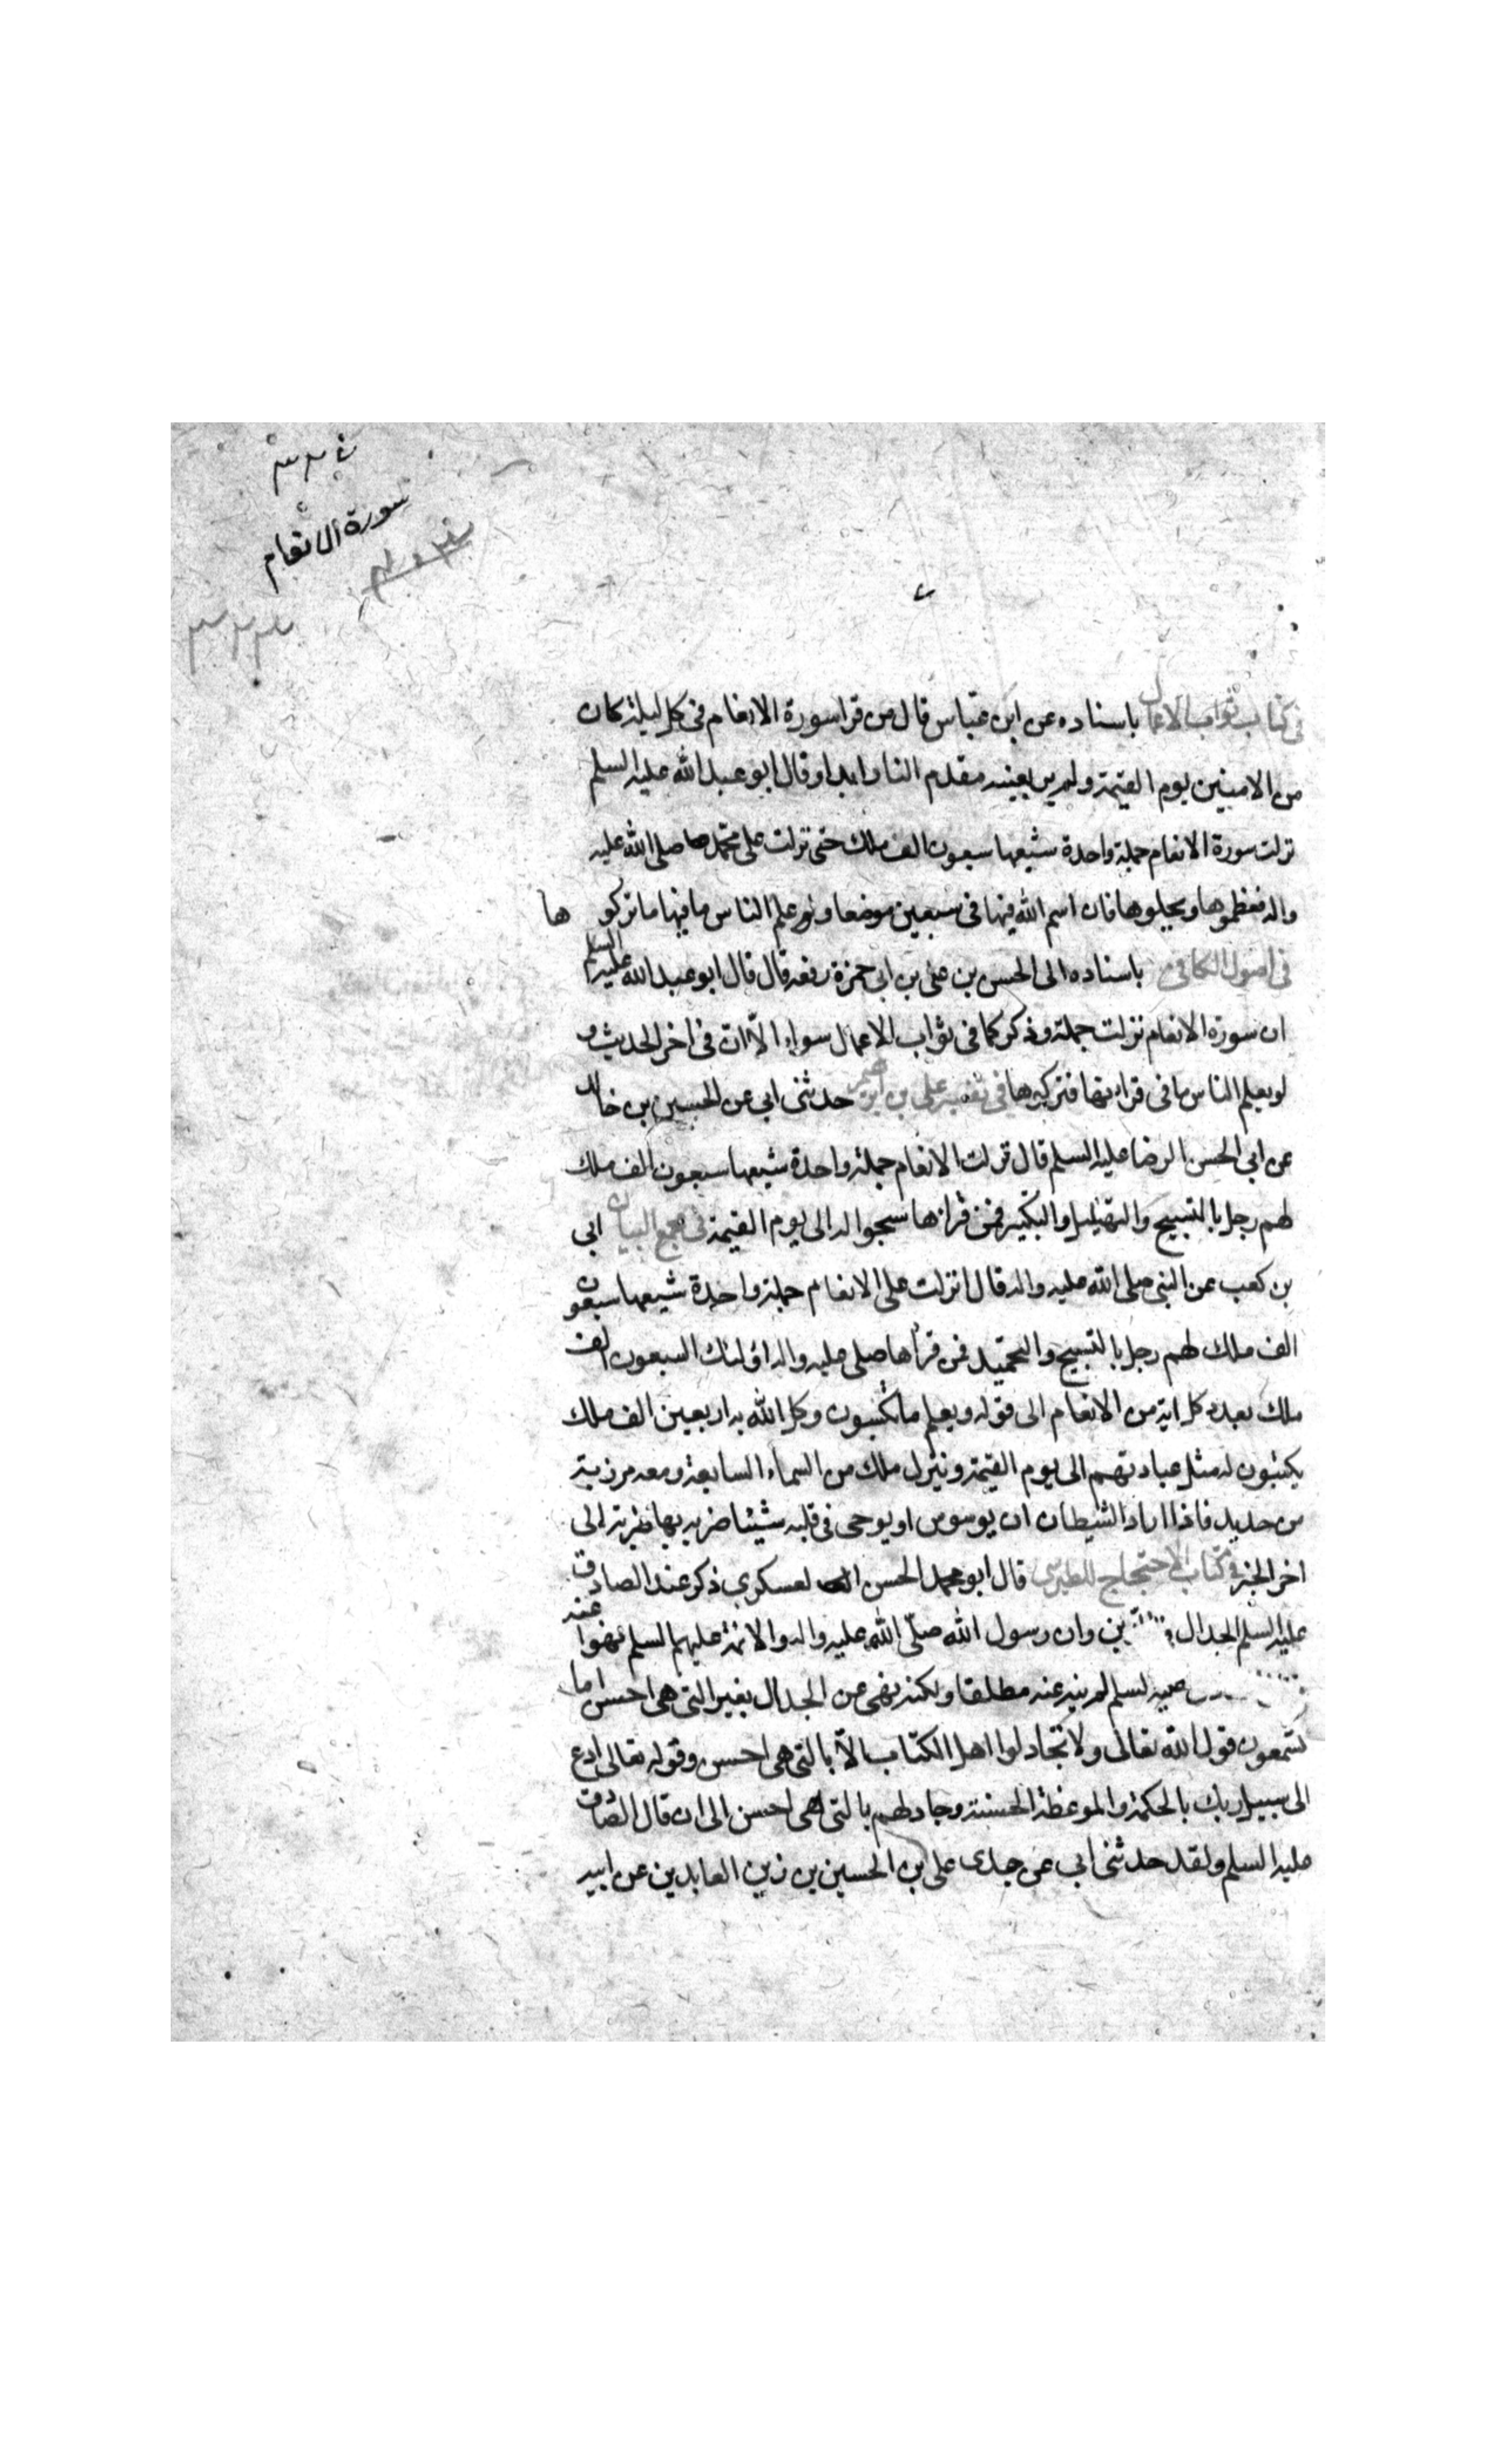 سورة الانعام
فى كتاب ثواب الاعمال باسناده عن ابن عباس قال من قرا سورة الانعام فى كل ليلة كان
من الامنين يوم القيمة ولم ير بعينه مقدم النار ابدا وقال ابو عبد الله عليه السلم
نزلت سورة الانعام جملة واحدة شيعها سبعون الف ملك حتى نزلت على محمد صلى الله عليه
واله فعظموها وبجلوها فان اسم الله فيها فى سبعين موضعا ولو علم الناس ما فيها ما تركو ها
فى اصول الكافى باسناده الى الحسن بن على بن ابى حمزة رفعه قال قال ابو عبد الله عليه السلم
ان سورة الانعام نزلت جملة وذكر كما فى ثواب الاعمال سواء الّا ان فى اخر الحديث و
لو يعلم الناس ما فى قرائتها فى تفسير على بن ابرهيم حدثنى ابى عن الحسين بن خالد
عن ابى الحسن الرضا عليه السلم قال نزلت الانعام جملة واحدة شيعها سبعون الف ملك
لهم زجل بالتسبيح والتهليل والتكبير فمن قراها سبحوا له الى يوم القيمة فى مجمع البيان ابى
بن كعب عن النبى صلى الله عليه واله قال انزلت على الانعام جملة واحدة شيعها سبعون
الف ملك لهم زجل بالتسبيح والتحميد فمن قرأها صلى عليه واله اولئك السبعون الف
ملك بعدد كل اية من الانعام الى قوله ويعلم ما تكسبون وكل الله به اربعين الف ملك
يكتبون له مثل عبادتهم الى يوم القيمة وينزل ملك من السماء السابعة ومعه مرزبة
من حديد فاذا اراد الشيطان ان يوسوس او يوحى فى قلبه شيئا ضربه بها ضربة الى
اخر الخبر فى كتاب الاحتجاج للطبرسى قال ابو محمد الحسن العسكري ذكر عند الصادق
عليه السلم الجدال وان رسول الله صلّى الله عليه واله والائمة عليهم السلم نهوا عنه
لم ينه عنه مطلقا ولكنه نهى عن الجدال بغير التى هى احسن اما
تسمعون قول الله تعالى ولا تجادلوا اهل الكتاب الّا بالتى هى احسن وقوله تعالى ادع
الى سبيل ربك بالحكمة والموعظة الحسنة وجادلهم بالتى هى احسن الى ان قال الصادق
عليه السلم ولقد حدثنى ابى عن جدى على بن الحسين بن زين العابدين عن ابيه